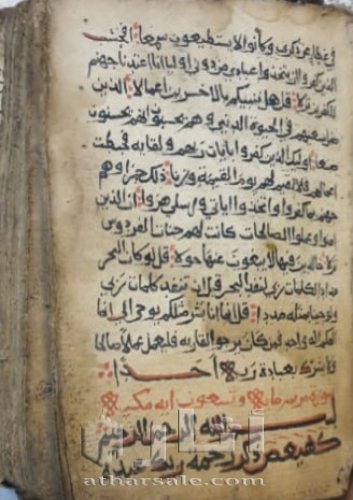 في غطاء عن ذكري وكانوا لا يستطيعون سمعا افحسب
الذين كفروا ان يتخذوا عبادي من دوني اوليا انا اعتدنا جهنم
للكفرين نزلا قل هل ننبيكم بالاخسرين اعمالا الذين
ضل سعيهم في الحيوة الدنيا وهم يحسبون انهم يحسنون
صنعا اوليك الذين كفروا بايات ربهم ولقايه فحبطت
اعمالهم فلا نقيم لهم يوم القيمة وزنا ذلك جزاوهم
جهنم بما كفروا واتخذوا اياتي ورسلي هزوا ان الذين
امنوا وعملوا الصالحات كانت لهم جنات الفردوس
نزلا خالدين فيها لا يبغون عنها حولا قل لو كان البحر
مدادا لكلمات ربي لنفد البحر قبل ان تنفد كلمات ربي
ولو جينا بمثله مددا قل انما انا بشر مثلكم يوحى الي انما
الهكم اله واحد فمن كان يرجو القا ربه فليعمل عملا صالحا
ولا يشرك بعبادة ربه احدا
سورة مريم وتسعون ايه مكية
بسم الله الرحمن الرحيم
كهيعص ذكر رحمة ربك عبده
أثار
atharsale.com